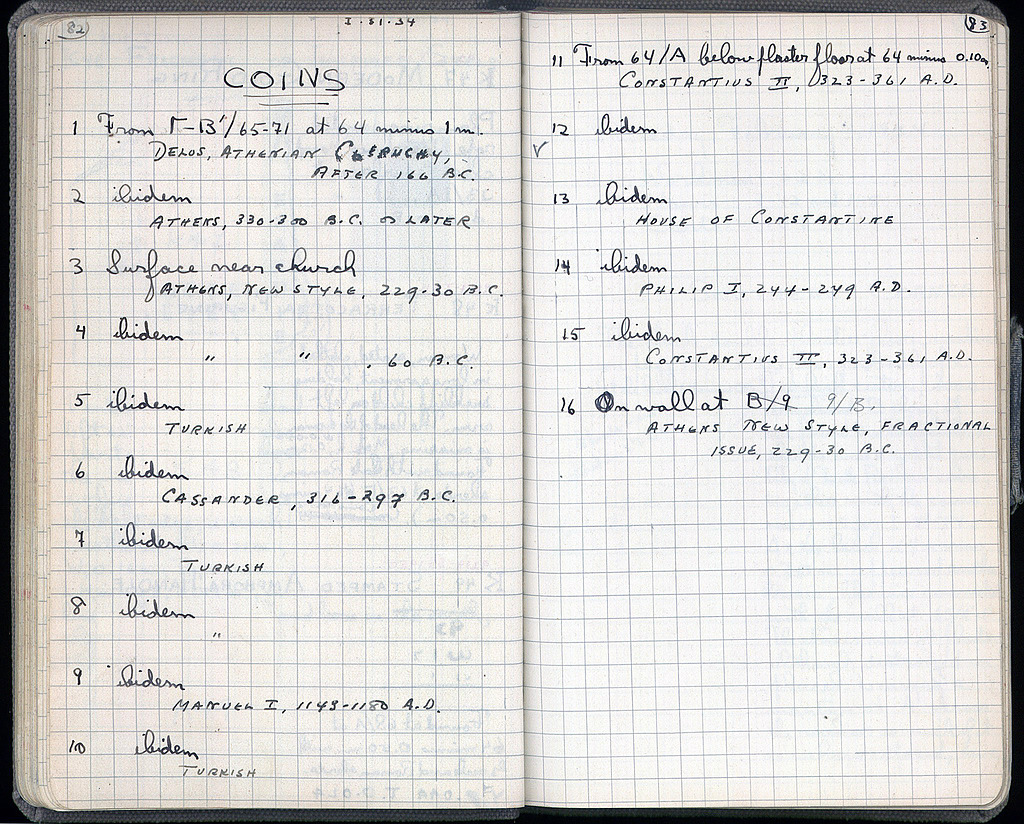 82
I-31-34
COINS
1 From Γ-Β'/65-71 at 64 minus 1m.
DELOS, ATHENIAN CLERUCHY,
AFTER 166 B.C.
2 ibidem
ATHENS, 330-300 B.C. OR LATER
3 Surface near church
ATHENS, NEW STYLE, 229-30 B.C.
4 ibidem
" " , 60 B.C.
5 ibidem
TURKISH
6 ibidem
CASSANDER, 316-297 B.C.
7 ibidem
TURKISH
8 ibidem
"
9 ibidem
MANUEL I, 1143-1180 A.D.
10 ibidem
TURKISH
83
11 From 64/A below plaster floor at 64 minus 0.10m.
CONSTANTIUS II, 323-361 A.D.
12 ibidem
✓
13 ibidem
HOUSE OF CONSTANTINE
14 ibidem
PHILIP I, 244-249 A.D.
15 ibidem
CONSTANTIUS II, 323-361 A.D.
16 On wall at B/9 9/B.
ATHENS NEW STYLE, FRACTIONAL
ISSUE, 229-30 B.C.